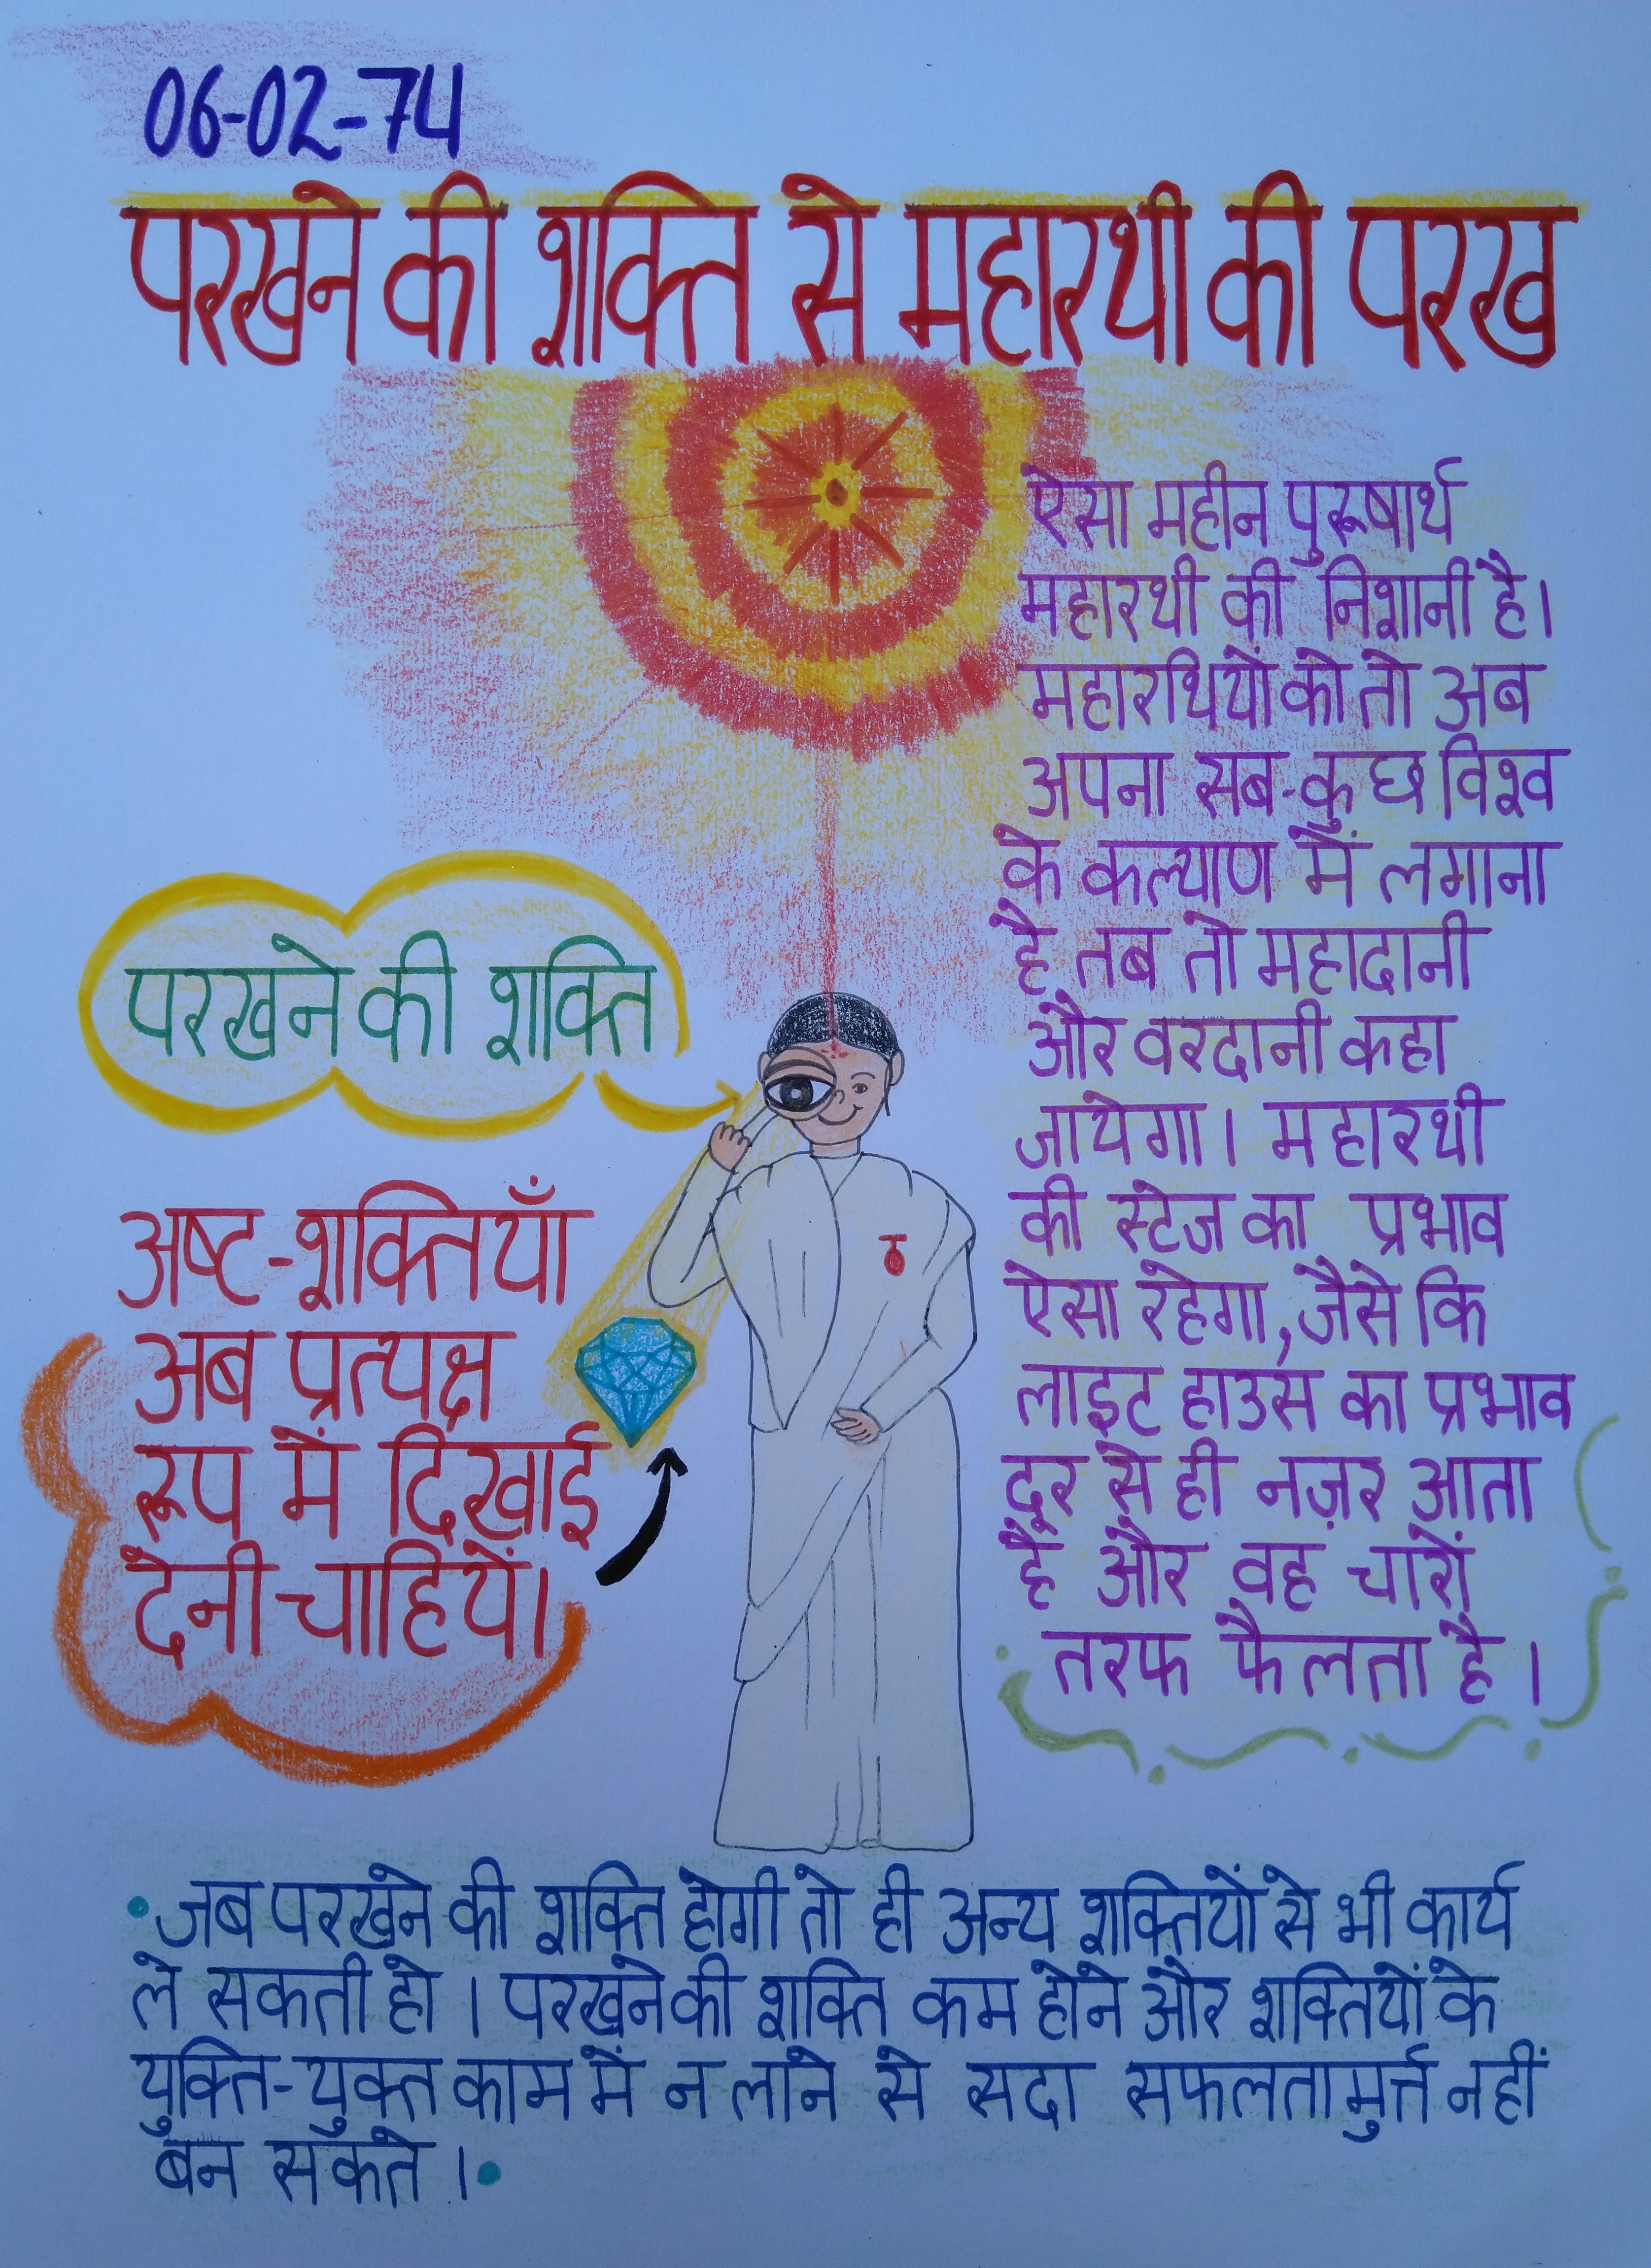 06-02-74
परखने की शक्ति से महारथी की परख
ऐसा महीन पुरूषार्थ
महारथी की निशानी है।
महारथियों को तो अब
अपना सब-कुछ विश्व
के कल्याण में लगाना
है तब तो महादानी
और वरदानी कहा
जायेगा। महारथी
की स्टेज का प्रभाव
ऐसा रहेगा, जैसे कि
लाइट हाउस का प्रभाव
दूर से ही नज़र आता
है और वह चारों
तरफ फैलता है।
परखने की शक्ति
अष्ट-शक्तियाँ
अब प्रत्यक्ष
रूप में दिखाई
देनी चाहियें।
• जब परखने की शक्ति होगी तो ही अन्य शक्तियों से भी कार्य
ले सकती हो। परखने की शक्ति कम होने और शक्तियों के
युक्ति-युक्त काम में न लाने से सदा सफलतामुर्त्त नहीं
बन सकते।•